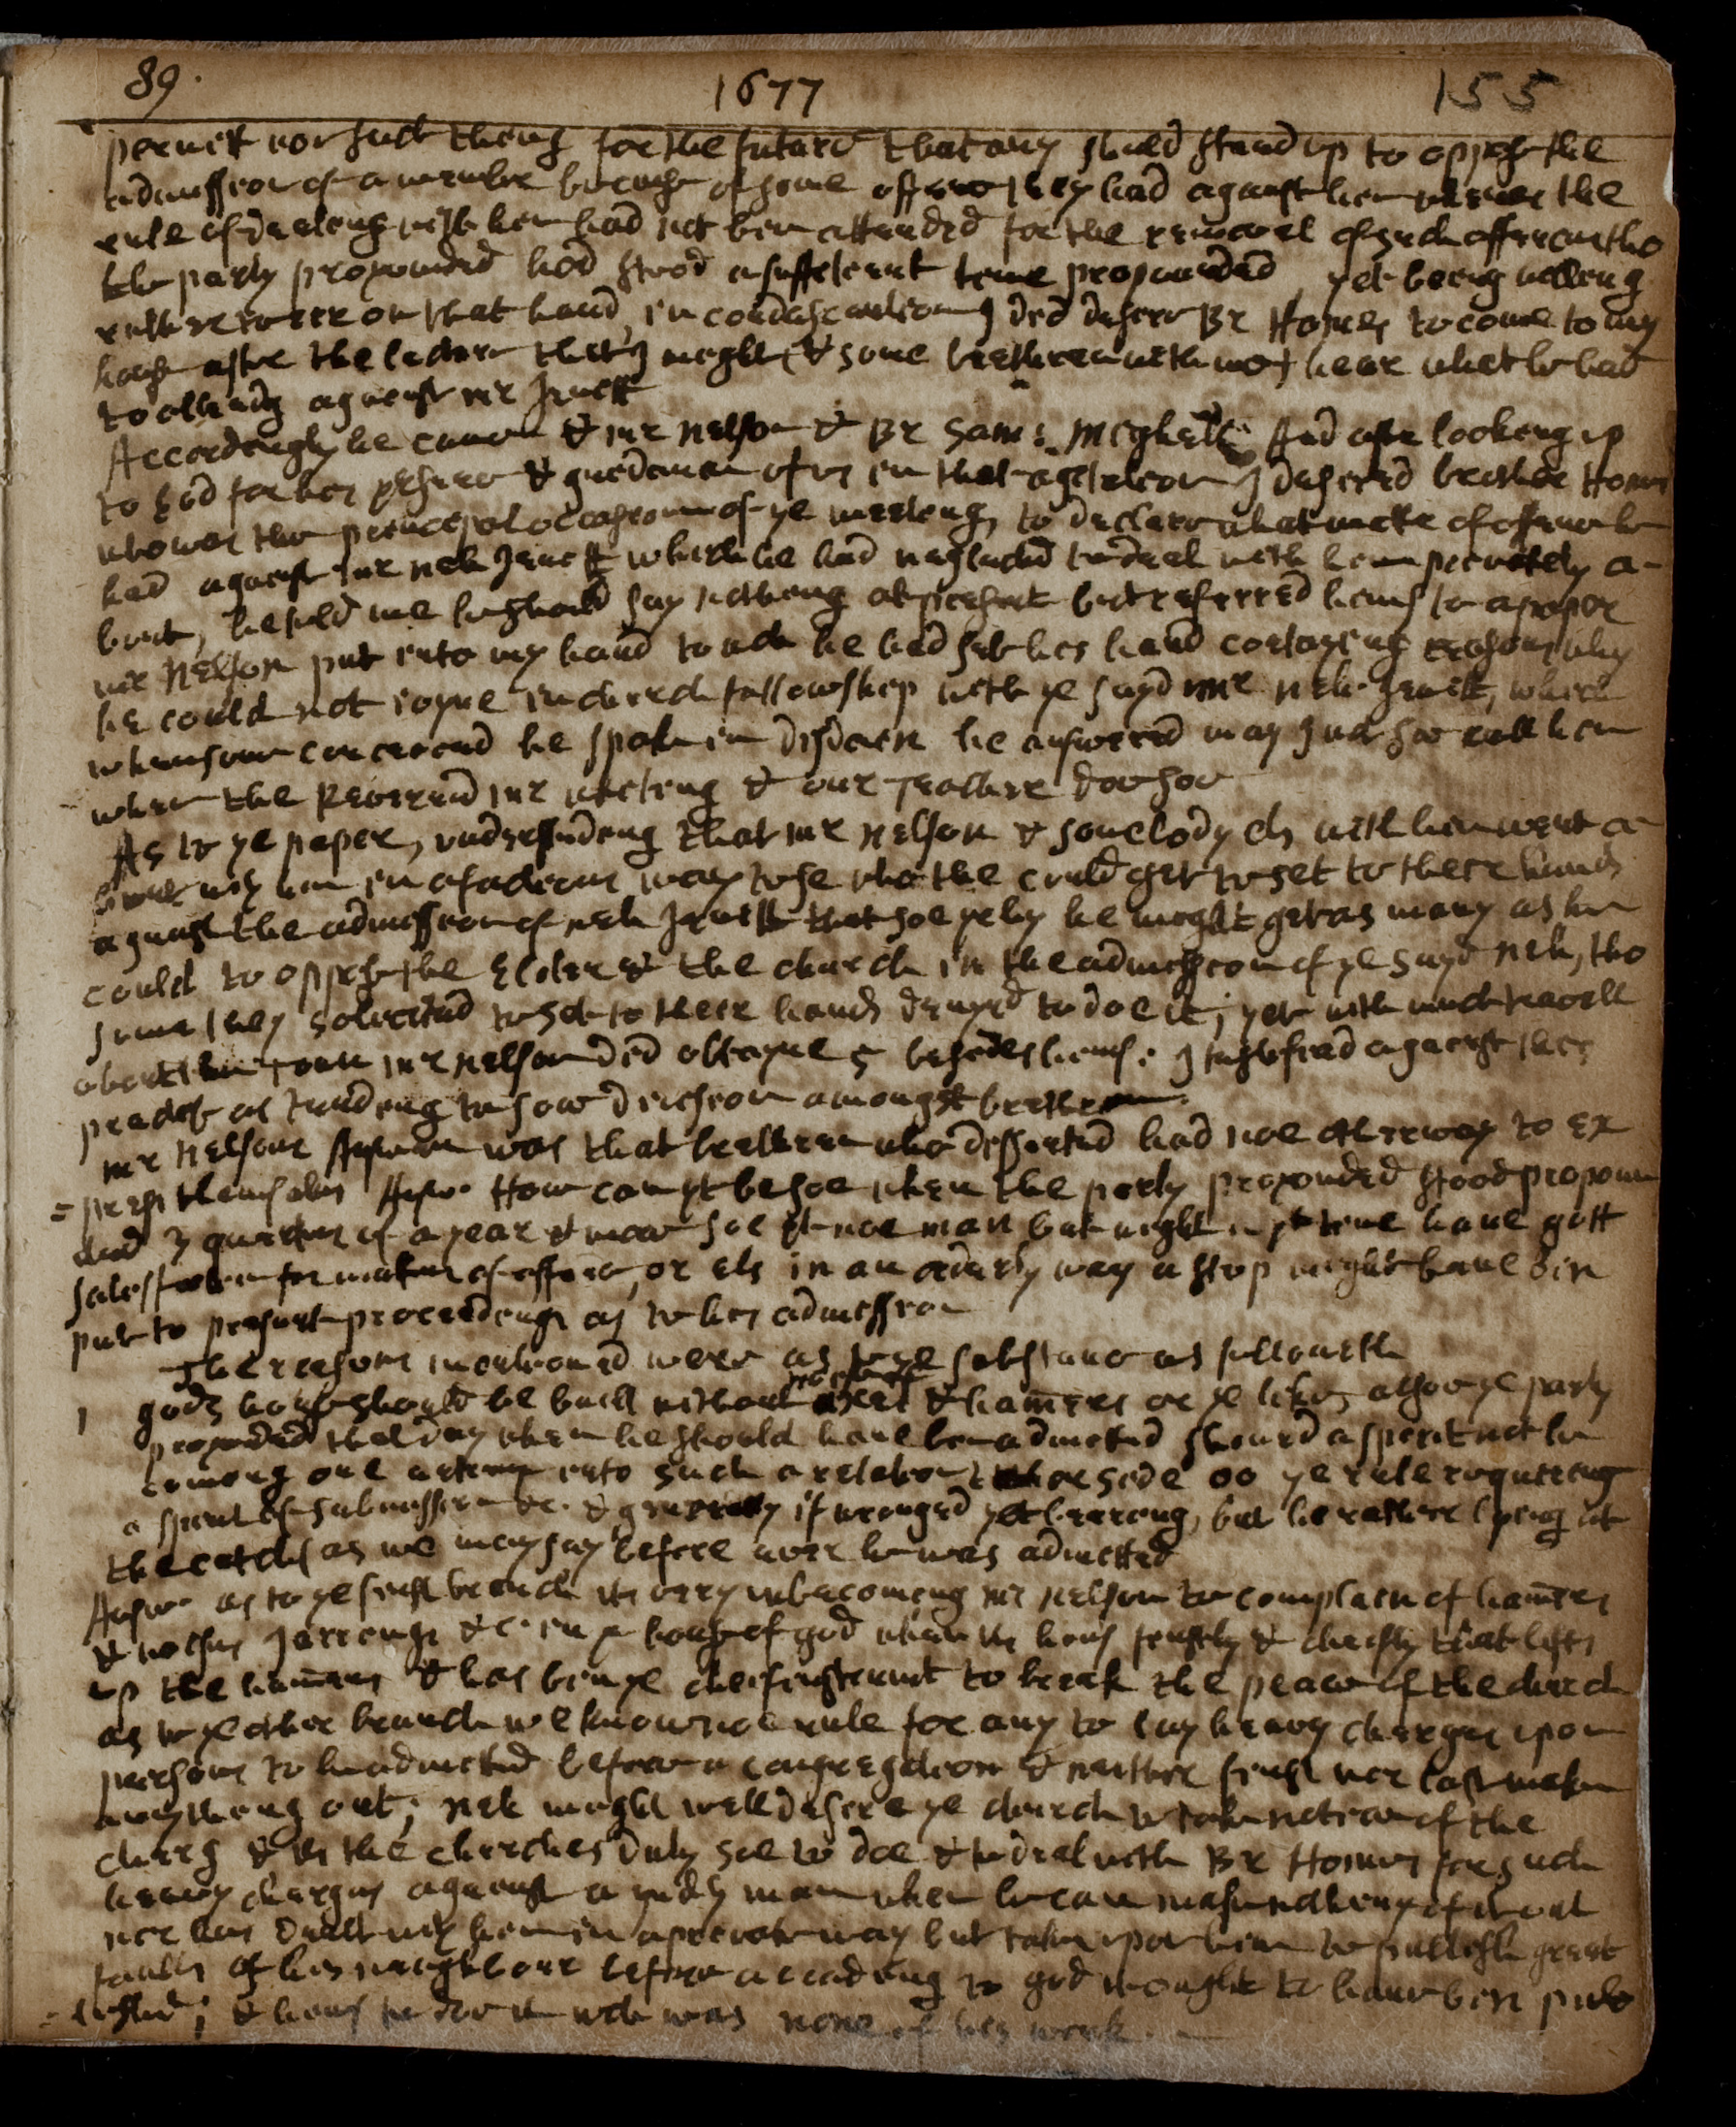 89. 1677 155
permit nor such thing for the future that any should stand up to oppose the
admission of a member because of some offence they had against him when the
rule of dealing with him had not ben attended for the removal of such offence tho
the party propounded had stood a sufficient time propounded, yet being willing
rather to erre on that hand, in condescention I did desire Br Homes to come to my
house after the lecture that I might (& some brethren with me) hear what he had
to alleadg against mr Jewett
Accordingly he came & mr Nelson & Br Sam: Mighell And after looking up
to God for his presence & guidance of us in that agitation I desired brother Homes
who was the principal occasion of ye meeting, to declare what matter of offence he
had against mr Neh Jewett which he had neglected to deal with him privately a-
bout, he told me he should say nothing at present but referred himself to a paper
mr Nelson put into my hand to wch he had set his hand containing reasons why
he could not joyne in church fellowship with ye sayd mr Neh. Jewett, which
when some conceived he spake in disdain he answered may I not soe call him
when the Reverend mr whiting & our Teacher doe soe
As to ye paper, understanding that mr Nelson & somebody els with him went a-
bout with him in a factious way to se who the could get to set to their hands
against the admission of Neh Jewett that soe yrby he might get as many as he
could to oppose the Elder & the church in the admission of ye sayd Neh, tho
some they solicited to set to their hands denyed to doe it; yet with much travell
about the towne mr Nelson did obtayne 5 besides himself: I testified against this
practise as tending to sow division amongst brethren.
mr Nelsons Answer was that brethren who dissented had noe other way to ex
=press themselves Answ. How can yt be soe when the party propounded stood propoun
ded 3 quarters of a year & more soe yt noe man but might in yt time have gott
satisfaction for matter of offence, or els in an orderly way a stop might have bin
put to present proceedings as to his admission
The reasons mentioned were as to ye substance as followeth
1 gods house should be built without noise of axes & hamers or ye like, also ye party
propounded that day when he should have ben admitted shewed a spirit not be
coming one entering into such a relation & on ye side ye rule requiring
a spirit of submission &c. & generally if wronged yet bearing, but he rather lyeing at
the catch as we may say before ever he was admitted
Answ. as to ye first branch its very unbecoming mr Nelson to complain of hamers
& noises jarrings &c. in ye house of god when its himself firstly & chiefly that lifts
up the hamers & has bin ye chief instrumt to break the peace of the church
as to ye other branch we know noe rule for any to lay heavy charges upon
persons to be admitted before a congregation & neither first nor last make
anything out; Neh might well desire ye church to take notice of the
charg & its the churches duty soe to doe & to deal with Br Homes for such
heavy charges against a godly man when he can make nothing of it out
nor has dealt with him in a private way but takes upon him to publish great
faults of his neighbour before according to god it ought to have ben pub
-lished; & himself to doe it wch was none of his work.